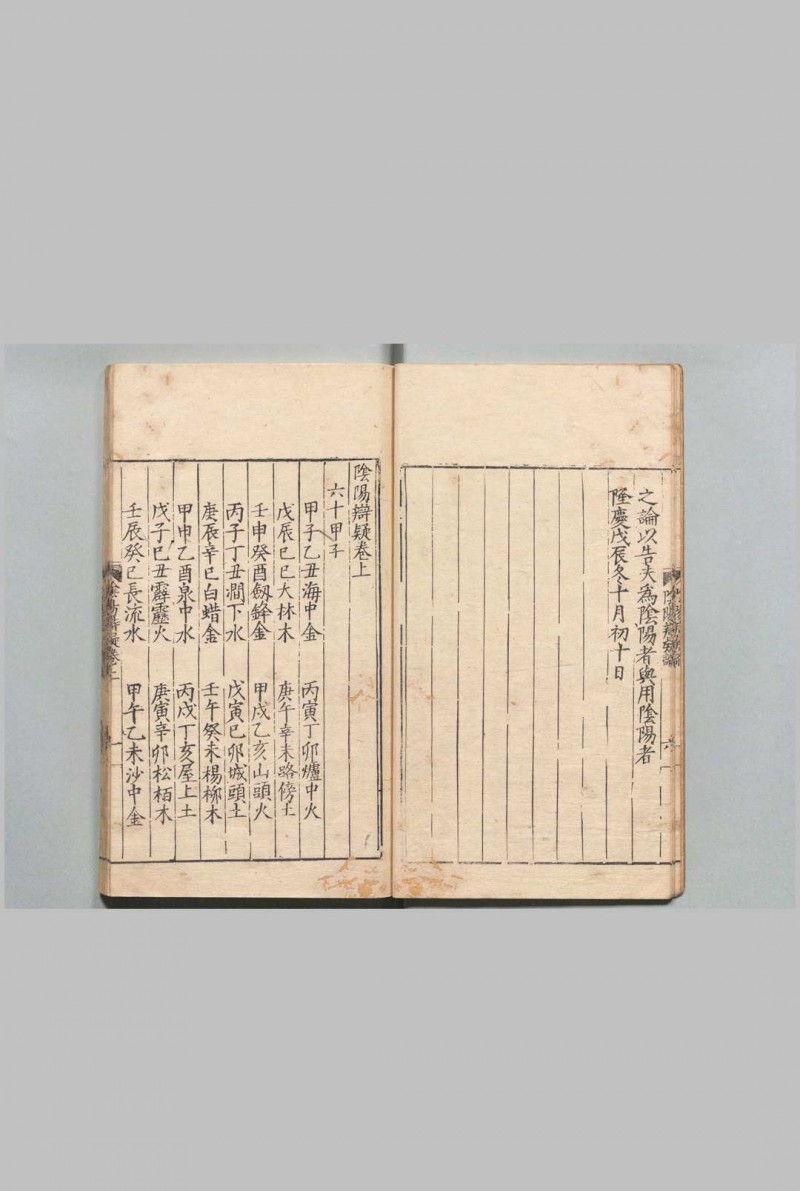 之論以告夫為陰陽者與用陰陽者
隆慶戊辰冬十月初十日
陰陽辯疑論
六
陰陽辯疑卷上
六十甲子
甲子乙丑海中金 丙寅丁卯爐中火
戊辰巳巳大林木 庚午辛未路傍土
壬申癸酉劔鋒金 甲戌乙亥山頭火
丙子丁丑澗下水 戊寅巳卯城頭土
庚辰辛巳白蜡金 壬午癸未楊柳木
甲申乙酉泉中水 丙戌丁亥屋上土
戊子巳丑霹靂火 庚寅辛卯松栢木
壬辰癸巳長流水 甲午乙未沙中金
陰陽辯疑卷上
一